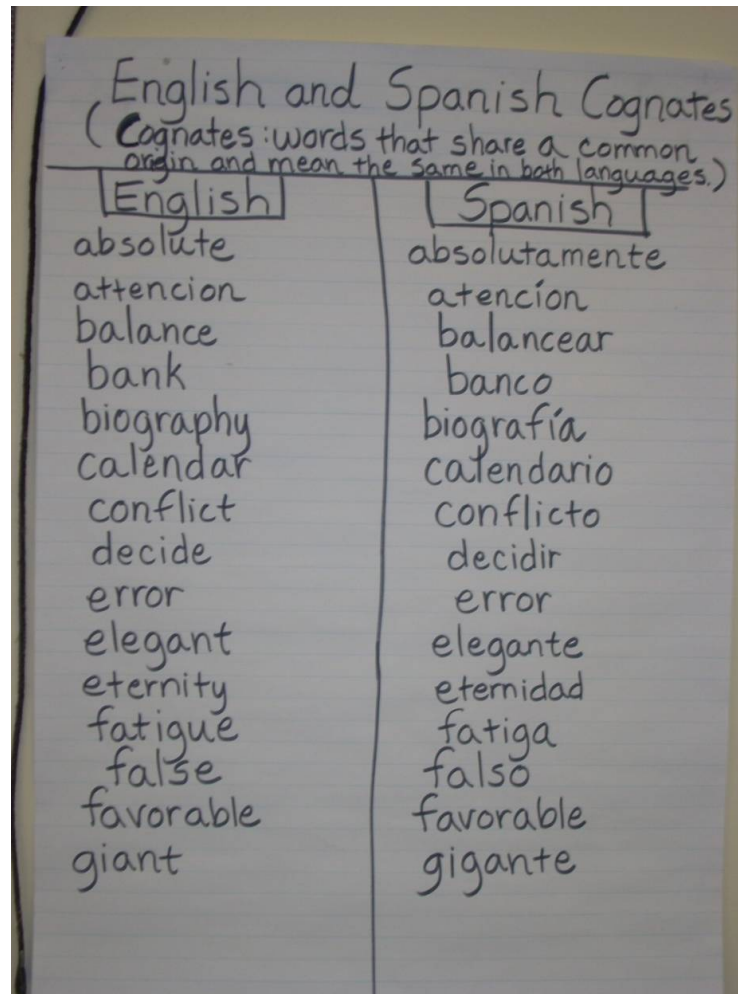 English and Spanish Cognates
(Cognates: words that share a common
origin and mean the same in both languages.)
English Spanish
absolute absolutamente
attencion atención
balance balancear
bank banco
biography biografía
calendar calendario
conflict conflicto
decide decidir
error error
elegant elegante
eternity eternidad
fatigue fatiga
false falso
favorable favorable
giant gigante